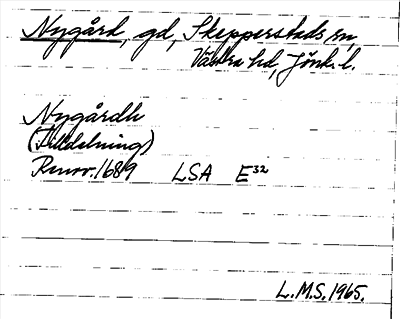 Nygård, gd, Skepperstads sn,
Västra hd, Jönk. l.
Nygårdh
(Tilldelning)
Renov. 1689 LSA E32
L.M.S. 1965.